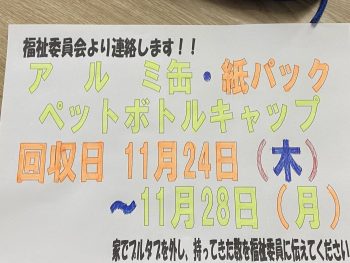 福祉委員会より連絡します！！
アルミ缶・紙パック
ペットボトルキャップ
回収日 11月24日（木）
～11月28日（月）
家でプルタブを外し、持ってきた数を福祉委員に伝えてください